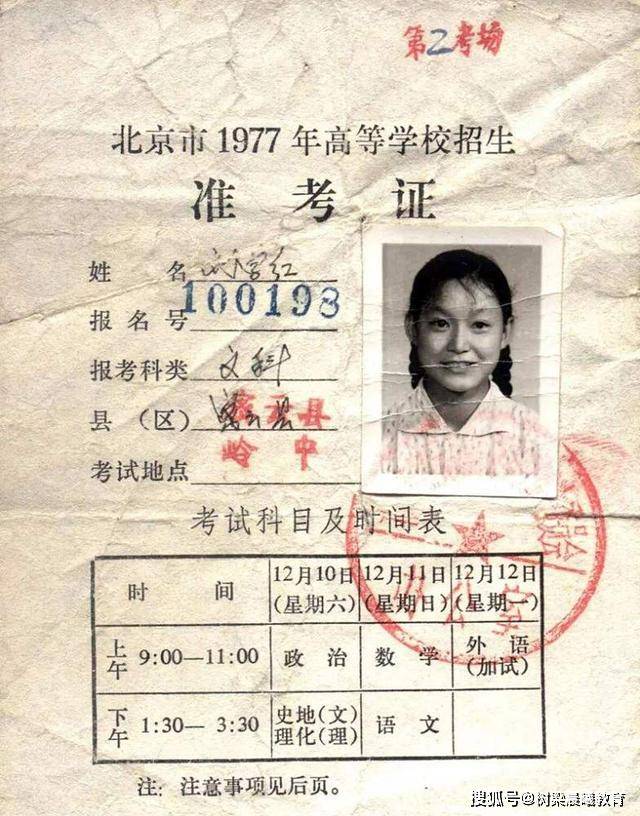 第2考场
北京市1977年高等学校招生
准考证
姓名
报名号 100198
报考科类 文科
县（区） 密云县
考试地点
考试科目及时间表
时间 12月10日(星期六) 12月11日(星期日) 12月12日(星期一)
上午 9:00—11:00 政治 数学 外语(加试)
下午 1:30—3:30 史地(文)理化(理) 语文
注：注意事项见后页。
搜狐号@树梁晨曦教育